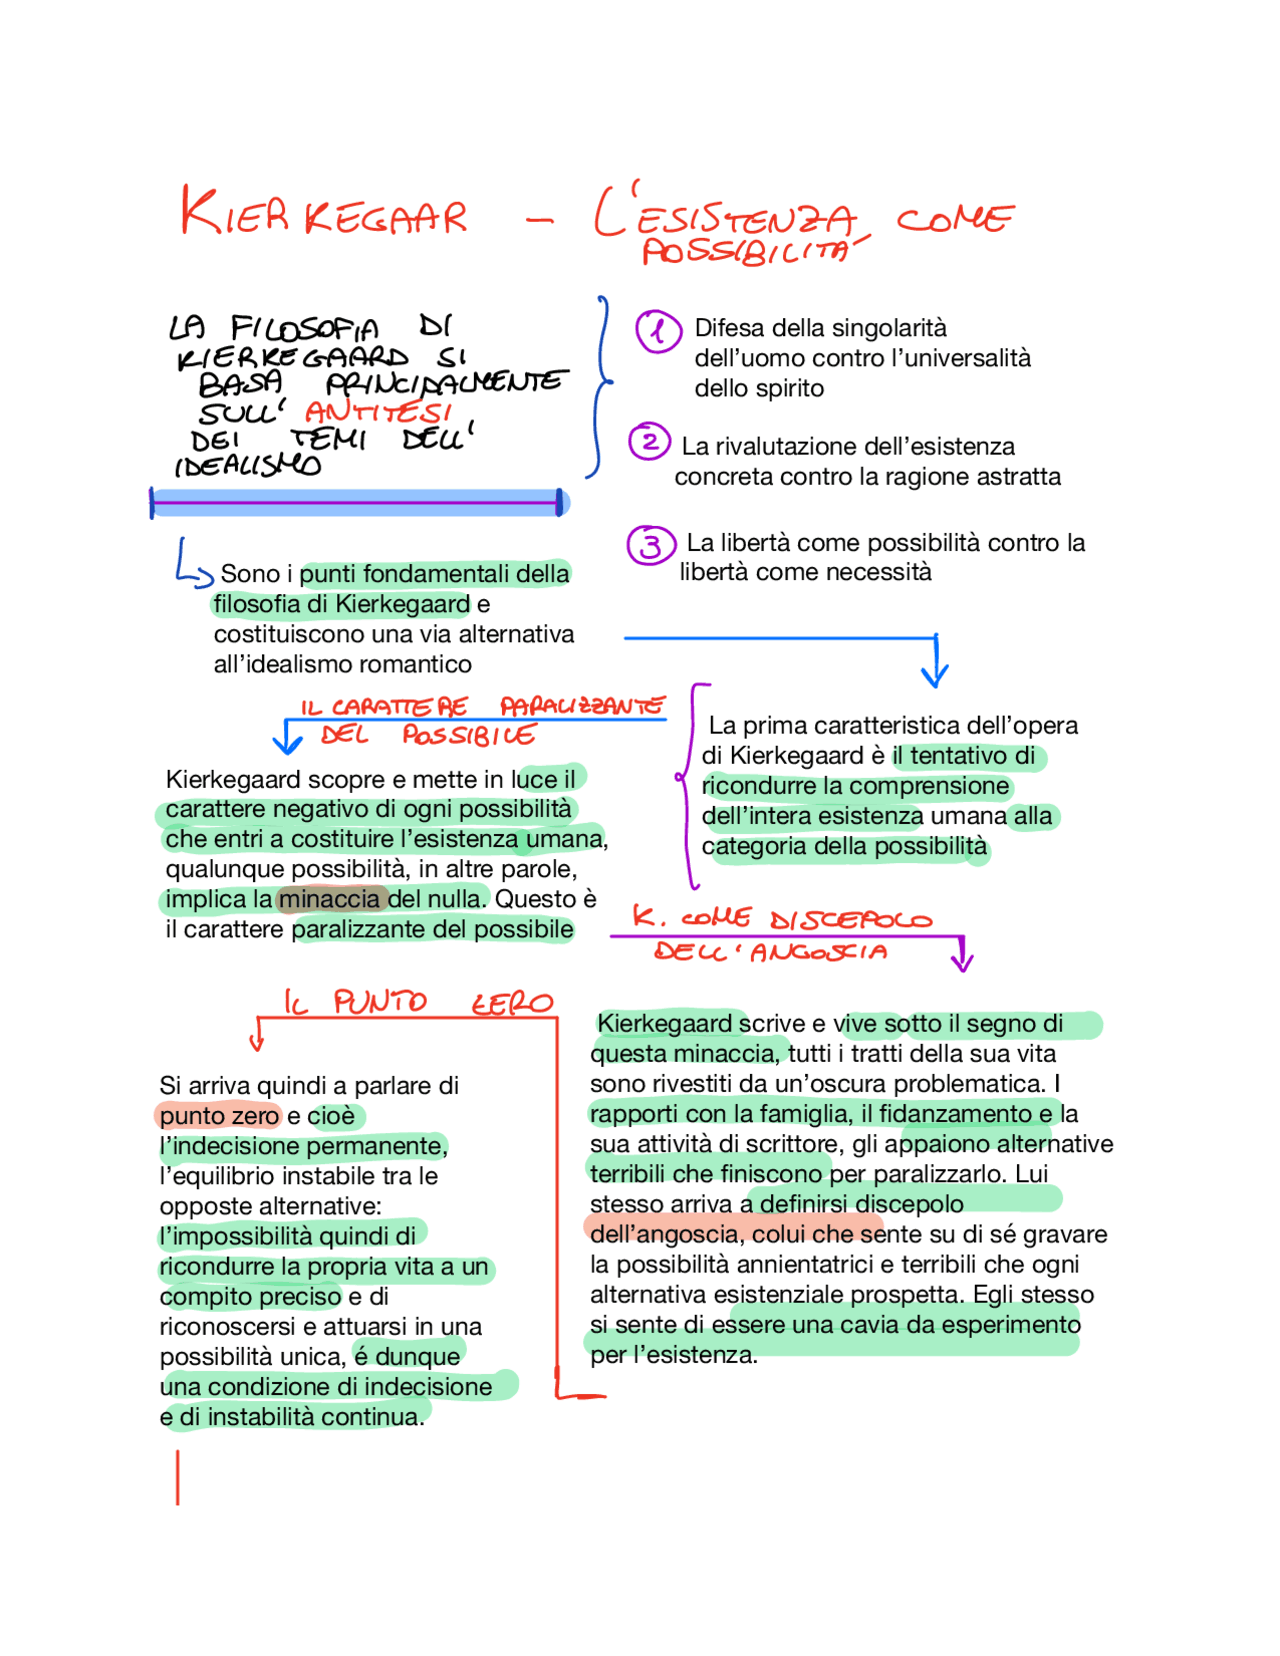 KIERKEGAAR - L'ESISTENZA COME
POSSIBILITA'
LA FILOSOFIA DI
KIERKEGAARD SI
BASA PRINCIPALMENTE
SULL' ANTITESI
DEI TEMI DELL'
IDEALISMO
1 Difesa della singolarità
dell'uomo contro l'universalità
dello spirito
2 La rivalutazione dell'esistenza
concreta contro la ragione astratta
3 La libertà come possibilità contro la
libertà come necessità
Sono i punti fondamentali della
filosofia di Kierkegaard e
costituiscono una via alternativa
all'idealismo romantico
La prima caratteristica dell'opera
di Kierkegaard è il tentativo di
ricondurre la comprensione
dell'intera esistenza umana alla
categoria della possibilità
IL CARATTERE PARALIZZANTE
DEL POSSIBILE
Kierkegaard scopre e mette in luce il
carattere negativo di ogni possibilità
che entri a costituire l'esistenza umana,
qualunque possibilità, in altre parole,
implica la minaccia del nulla. Questo è
il carattere paralizzante del possibile
K. COME DISCEPOLO
DELL'ANGOSCIA
Kierkegaard scrive e vive sotto il segno di
questa minaccia, tutti i tratti della sua vita
sono rivestiti da un'oscura problematica. I
rapporti con la famiglia, il fidanzamento e la
sua attività di scrittore, gli appaiono alternative
terribili che finiscono per paralizzarlo. Lui
stesso arriva a definirsi discepolo
dell'angoscia, colui che sente su di sé gravare
la possibilità annientatrici e terribili che ogni
alternativa esistenziale prospetta. Egli stesso
si sente di essere una cavia da esperimento
per l'esistenza.
IL PUNTO ZERO
Si arriva quindi a parlare di
punto zero e cioè
l'indecisione permanente,
l'equilibrio instabile tra le
opposte alternative:
l'impossibilità quindi di
ricondurre la propria vita a un
compito preciso e di
riconoscersi e attuarsi in una
possibilità unica, é dunque
una condizione di indecisione
e di instabilità continua.